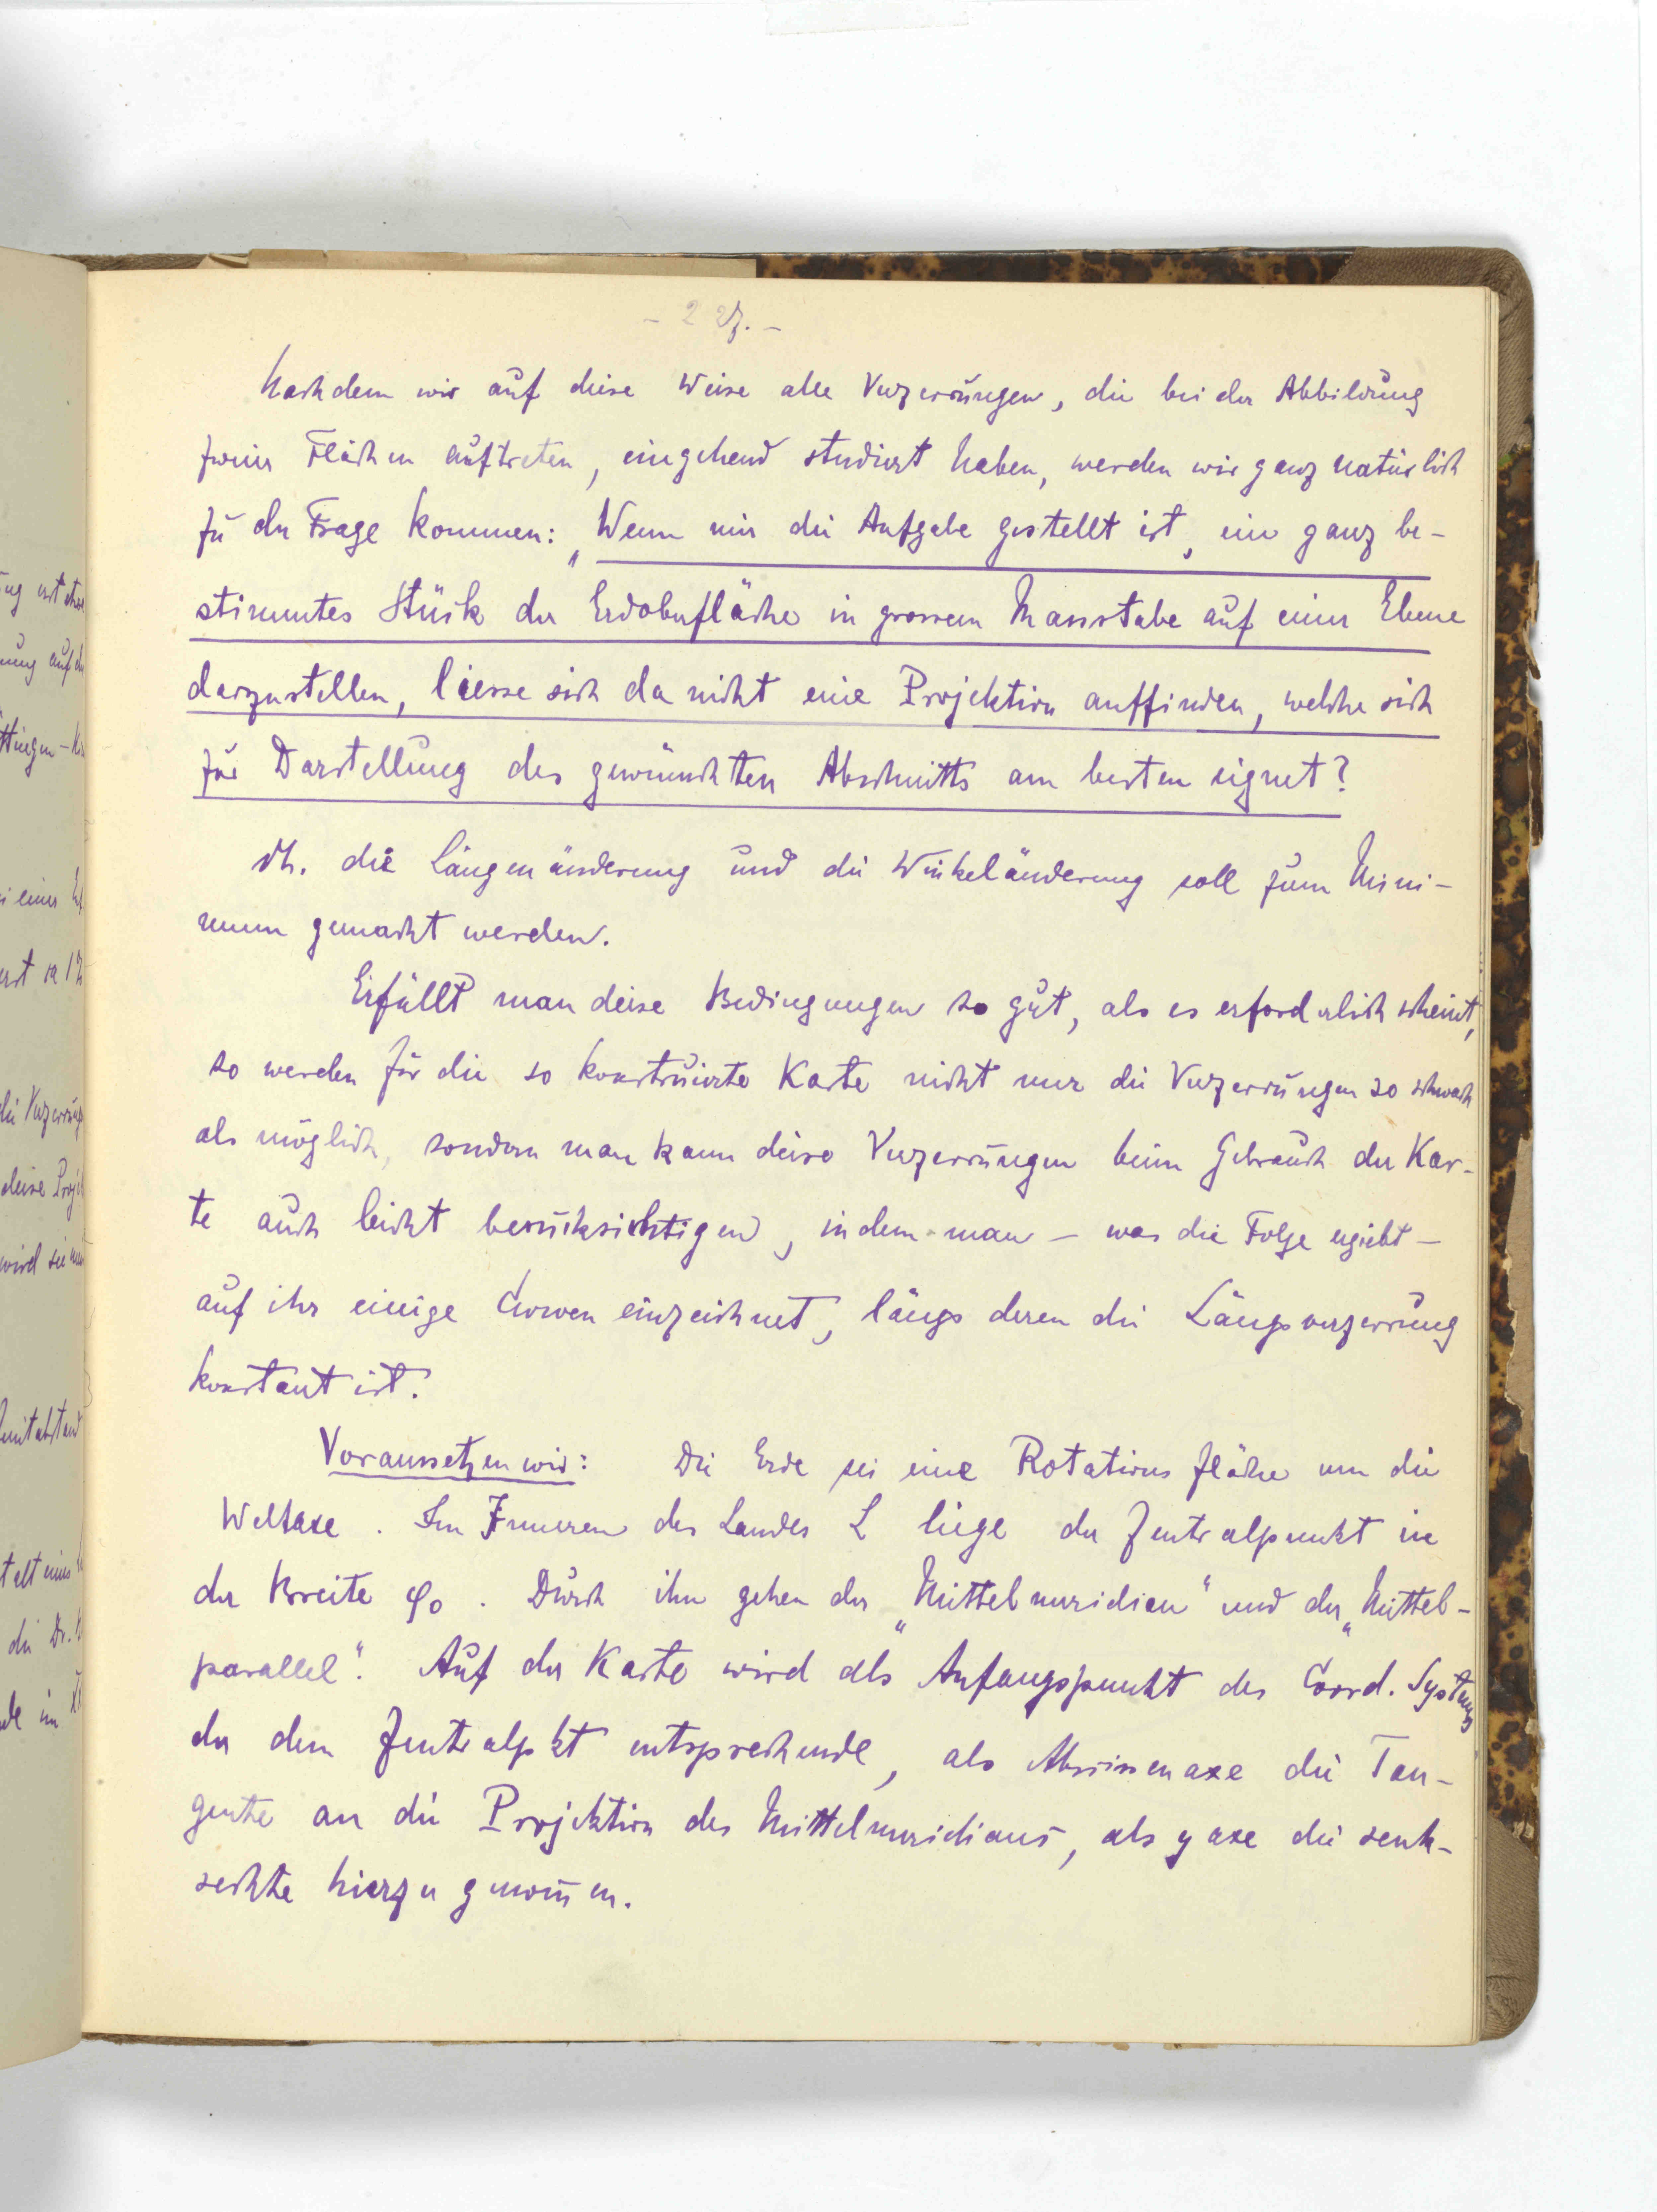 - 227. -
Nachdem wir auf diese Weise alle Verzerrungen, die bei der Abbildung
zweier Flächen auftreten, eingehend studiert haben, werden wir ganz natürlich
zu der Frage kommen: „Wenn mir die Aufgabe gestellt ist, ein ganz be-
stimmtes Stück der Erdoberfläche in grossem Massstabe auf einer Ebene
darzustellen, liesse sich da nicht eine Projektion auffinden, welche sich
zur Darstellung des gewünschten Abschnitts am besten eignet?
dh. die Längenänderung und die Winkeländerung soll zum Mini-
mum gemacht werden.
Erfüllt man diese Bedingungen so gut, als es erforderlich scheint,
so werden für die so konstruierte Karte nicht nur die Verzerrungen so schwach
als möglich, sondern man kann diese Verzerrungen beim Gebrauch der Kar-
te auch leicht berücksichtigen, indem man – was die Folge ergiebt –
auf ihr einige Curven einzeichnet, längs deren die Längsverzerrung
konstant ist.
Voraussetzen wir: Die Erde sei eine Rotationsfläche um die
Weltaxe. Im Inneren des Landes L liege der Zentralpunkt in
der Breite φ0. Durch ihn gehen der „Mittelmeridian“ und der „Mittel-
parallel“. Auf der Karte wird als Anfangspunkt des Coord. Systems
der dem Zentralpkt entsprechende, als Abscissenaxe die Tan-
gente an die Projektion des Mittelmeridians, als y axe die senk-
rechte hierzu genom̄en.